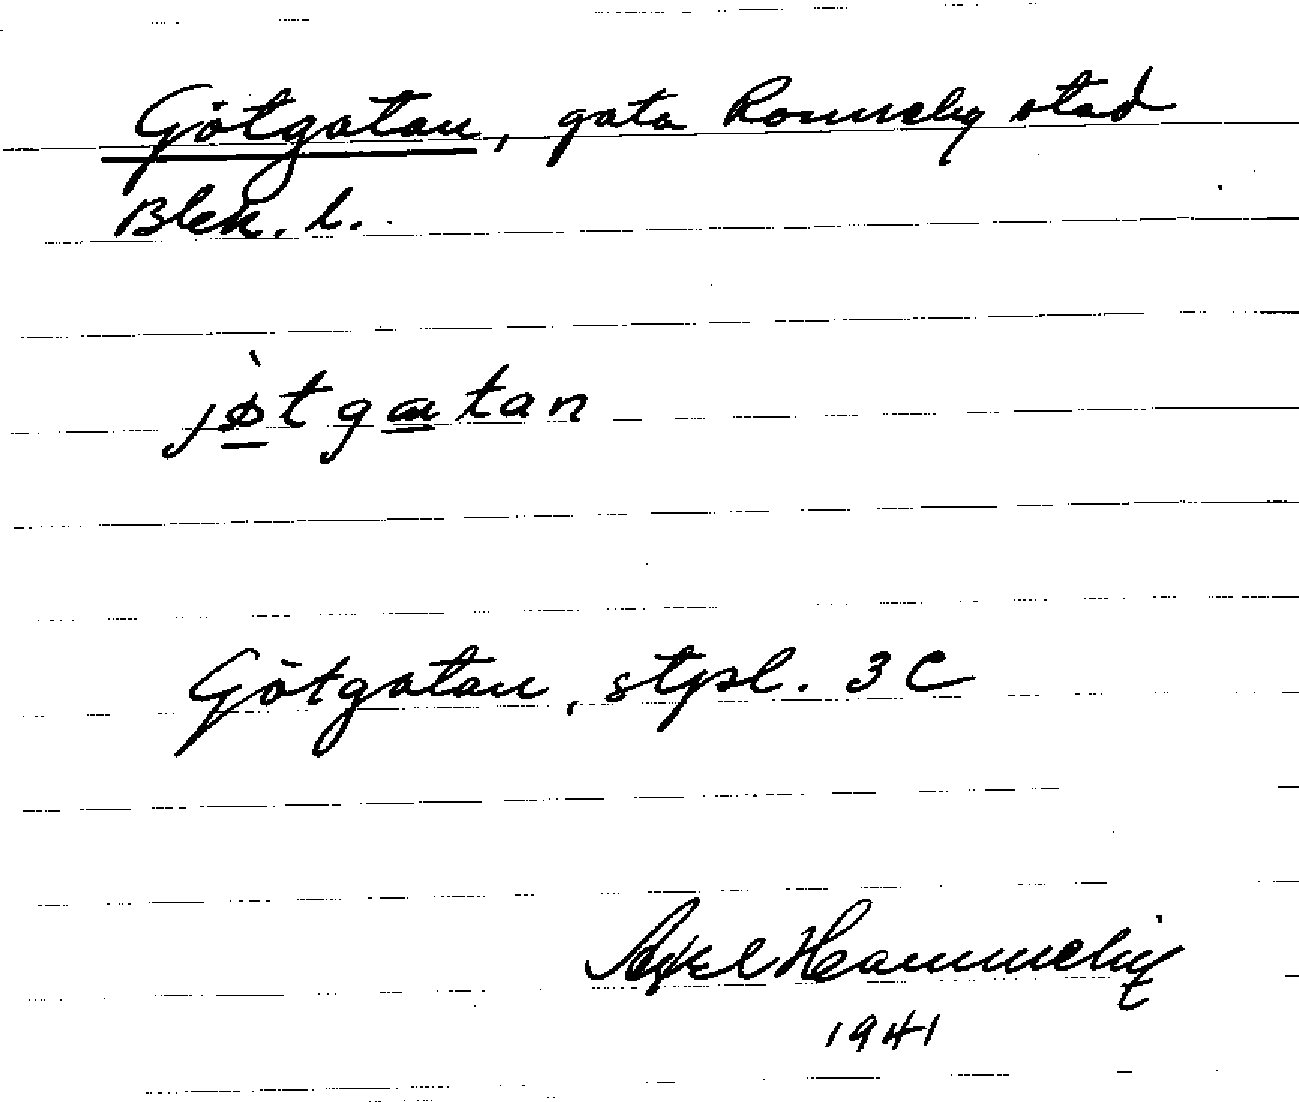 Götgatan, gata Ronneby stad
Blek. l.
jø̀tgatan
Götgatan, stpl. 3 C
Axel
1941